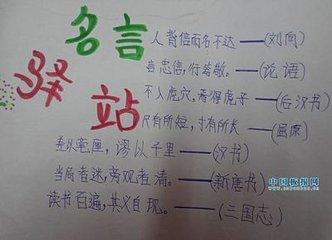 名言
驿站
人背信而名不达——(刘向)
言忠信,行笃敬。——(论语)
不入虎穴,焉得虎子——(后汉书)
尺有所短,寸有所长——(屈原)
差以毫厘,谬以千里——(汉书)
当局者迷,旁观者清。——(新唐书)
读书百遍,其义自现。——(三国志)
中国板报网